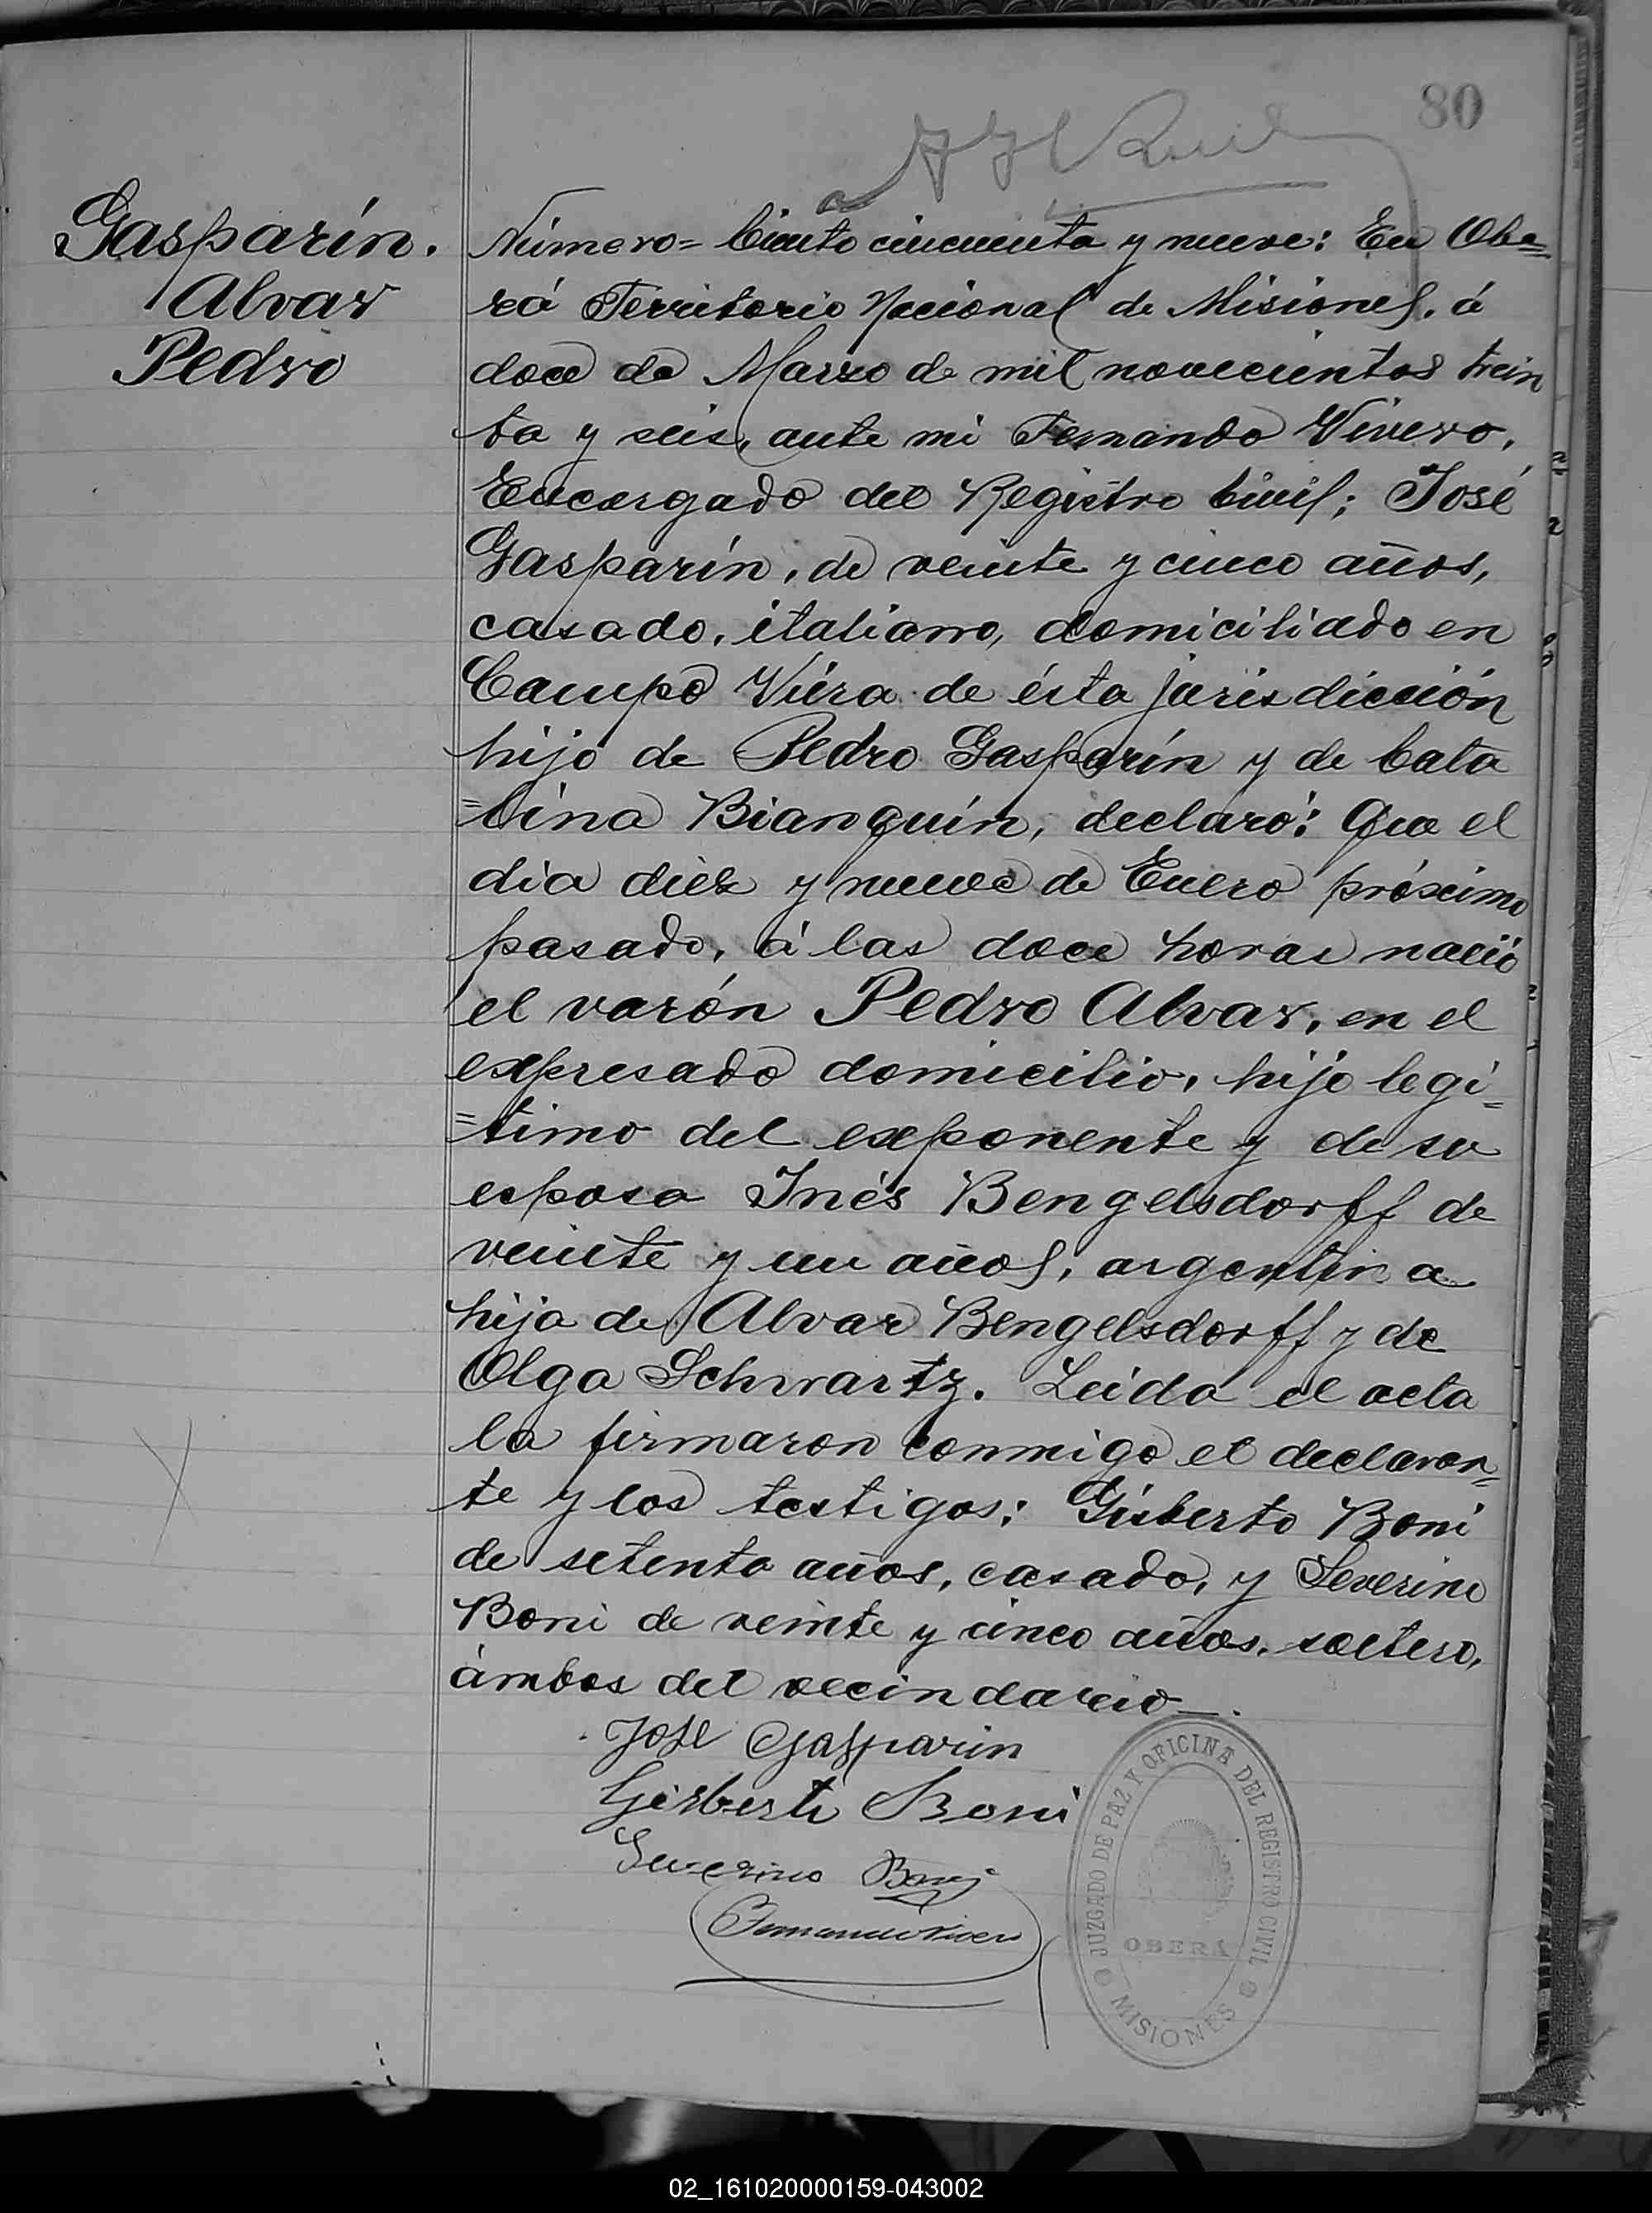 80
Gasparín.
Alvar
Pedro
Número= Ciento cincuenta y nueve: En Obe=
rá Territorio Nacional de Misiones, á
doce de Marzo de mil novecientos trein
ta y seis, ante mi Fernando Vivero,
Encargado del Registro Civil; José
Gasparín, de veinte y cinco años,
casado, italiano, domiciliado en
Campo Viera de ésta jurisdicción
hijo de Pedro Gasparín y de Cata
=lina Bianquín, declaró: Que el
dia diez y nueve de Enero próximo
pasado, á las doce horas nació
el varón Pedro Alvar, en el
expresado domicilio, hijo legi=
=timo del exponente y de su
esposa Inés Bengelsdorff de
veinte y un años, argentina
hija de Alvar Bengelsdorff y de
Olga Schwartz. Leida el acta
la firmaron conmigo el declaran=
te y los testigos: Gisberto Boni
de setenta años, casado, y Severino
Boni de veinte y cinco años, soltero,
ámbos del vecindario.
Jose Gasparin
Gisberto Boni
Severino Boni
Fernando Vivero
JUZGADO DE PAZ Y OFICINA DEL REGISTRO CIVIL
OBERÁ
MISIONES
02_161020000159-043002